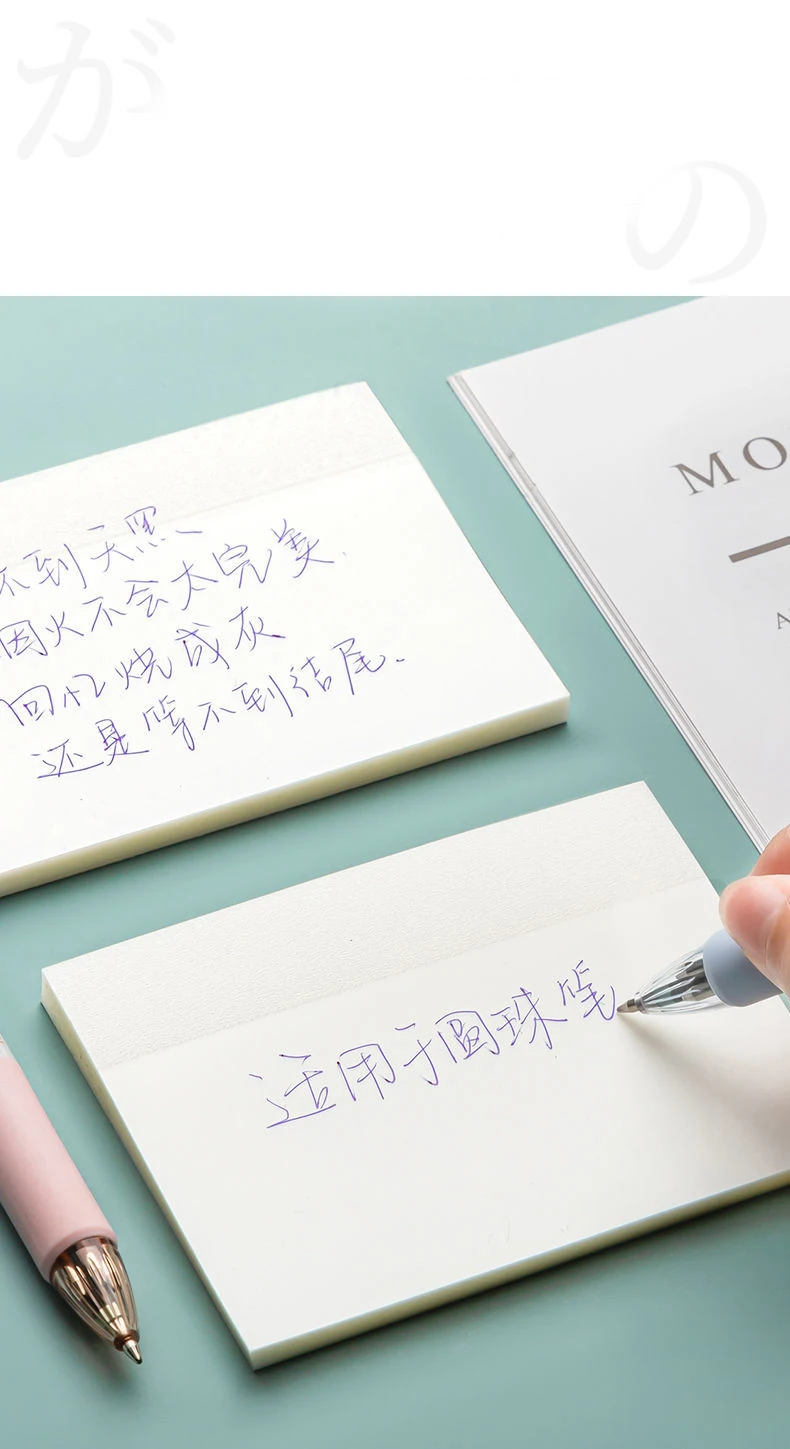 が
の
不到天黑
烟火不会太完美.
回忆烧成灰
还是等不到结尾.
MO
A
适用于圆珠笔